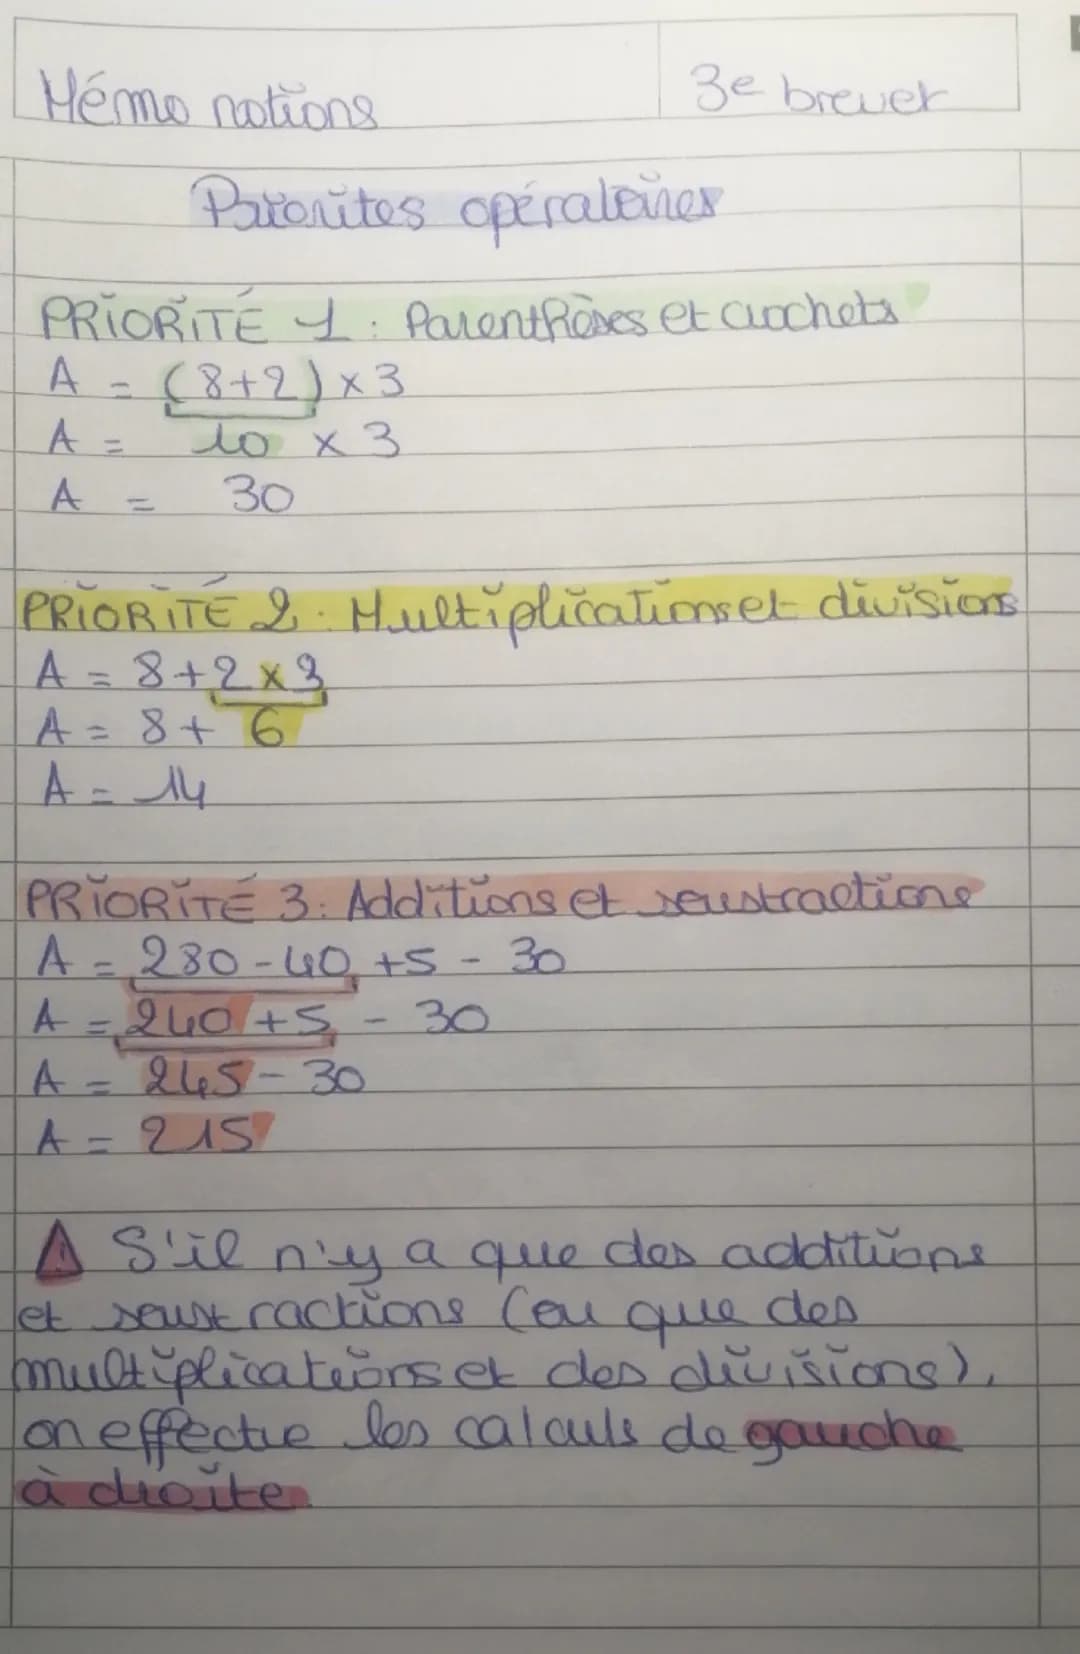 Mémo notions
3e brevet
Priorités opératoires
PRIORITÉ 1 : Parenthèses et crochets
A = (8+2) x 3
A = 10 x 3
A = 30
PRIORITÉ 2 : Multiplications et divisions
A = 8+2 x 3
A = 8+ 6
A = 14
PRIORITÉ 3 : Additions et soustractions
A = 280 - 40 +5 - 30
A = 240 +5 - 30
A = 245 - 30
A = 215
⚠ S'il n'y a que des additions
et soustractions (ou que des
multiplications et des divisions),
on effectue les calculs de gauche
à droite.